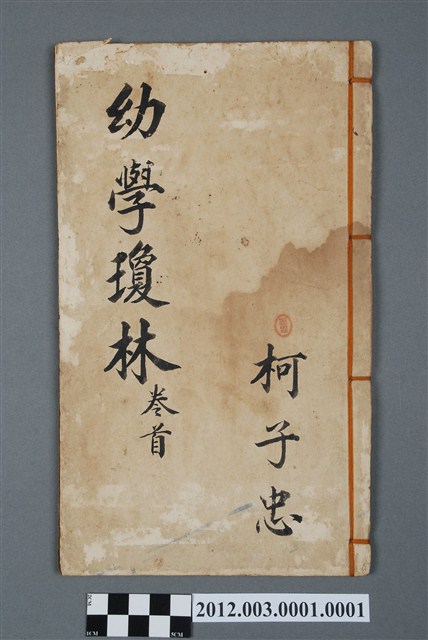 幼學瓊林
卷首
柯子忠
2CM
1CM
5CM
2012.003.0001.0001